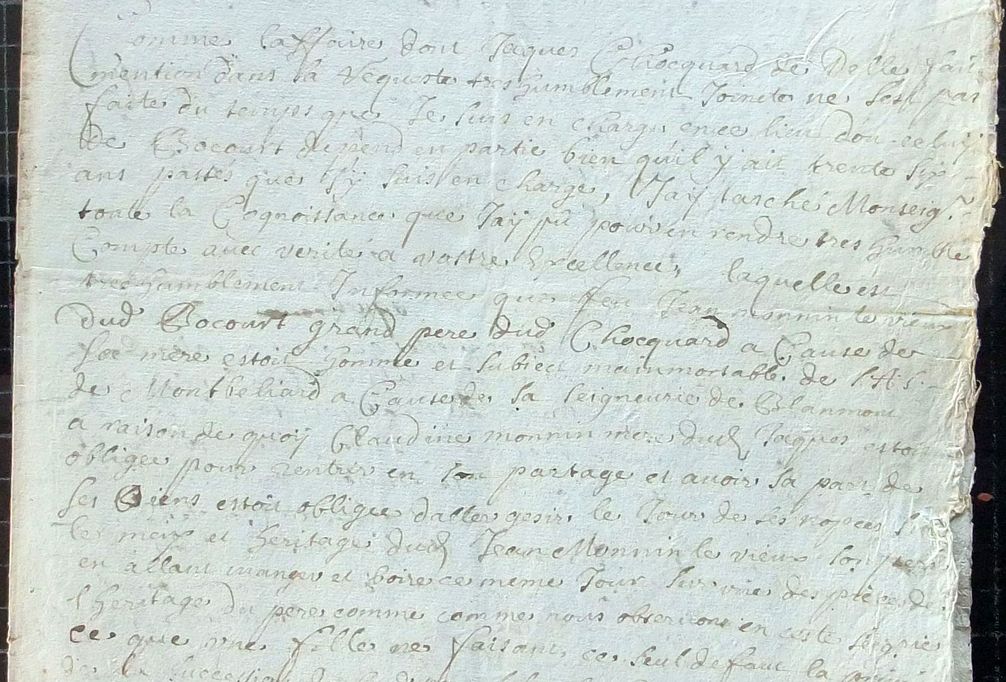 Comme laffaire dont Jaques Chocquard de Delle fait
mention dans la requeste tres humblement Joincte ne sest pas
faite du temps que Je suis en charge en ce lieu dou celuy
de Bocourt depend en partie bien quil y ait trente six
ans passés que J'y suis en charge, J'ay tasché Monseigr
toute la Cognoissance que Jay pu pour en rendre tres humble
Compte avec verité a vostre Excellence, laquelle est
tres humblement Informee que feu Jean monnin le vieux
dud Bocourt grand pere dud Chocquard a Cause de
sa mere estoit homme et subiect mainmortable de S. A. S.
de Montbeliard a Cause de sa seigneurie de Blanmont
a raison de quoy Claudine monnin mere dud Jaques estoit
obligee pour rentrer en son partage et avoir sa part de
ses Biens estoit obligee daller gesir le Jour de ses nopces
le meix et heritage dud Jean Monnin le vieux son pere
en allant manger et boire ce meme Jour sur une des pieces de
l heritage du pere comme comme nous observons en ceste seigrie
ce que une fille ne faisant ce seul defaut la prive
de la succession